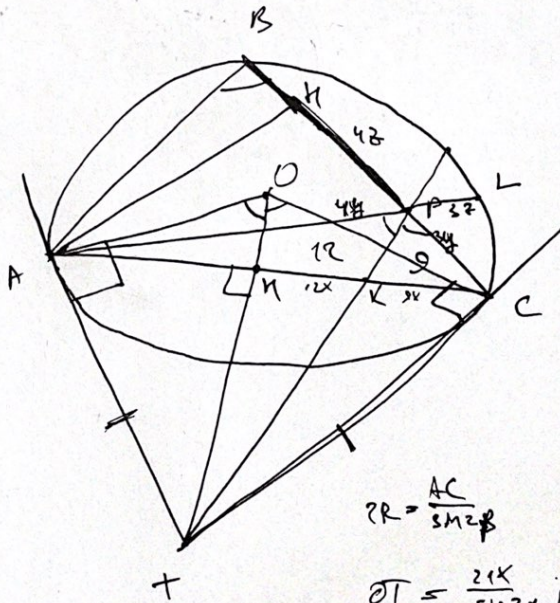 B
H
4z
O
4y
P
3z
L
3y
A
12
9
H
12x
K
9x
C
2R = AC / sin 2β
T
OT = 21x